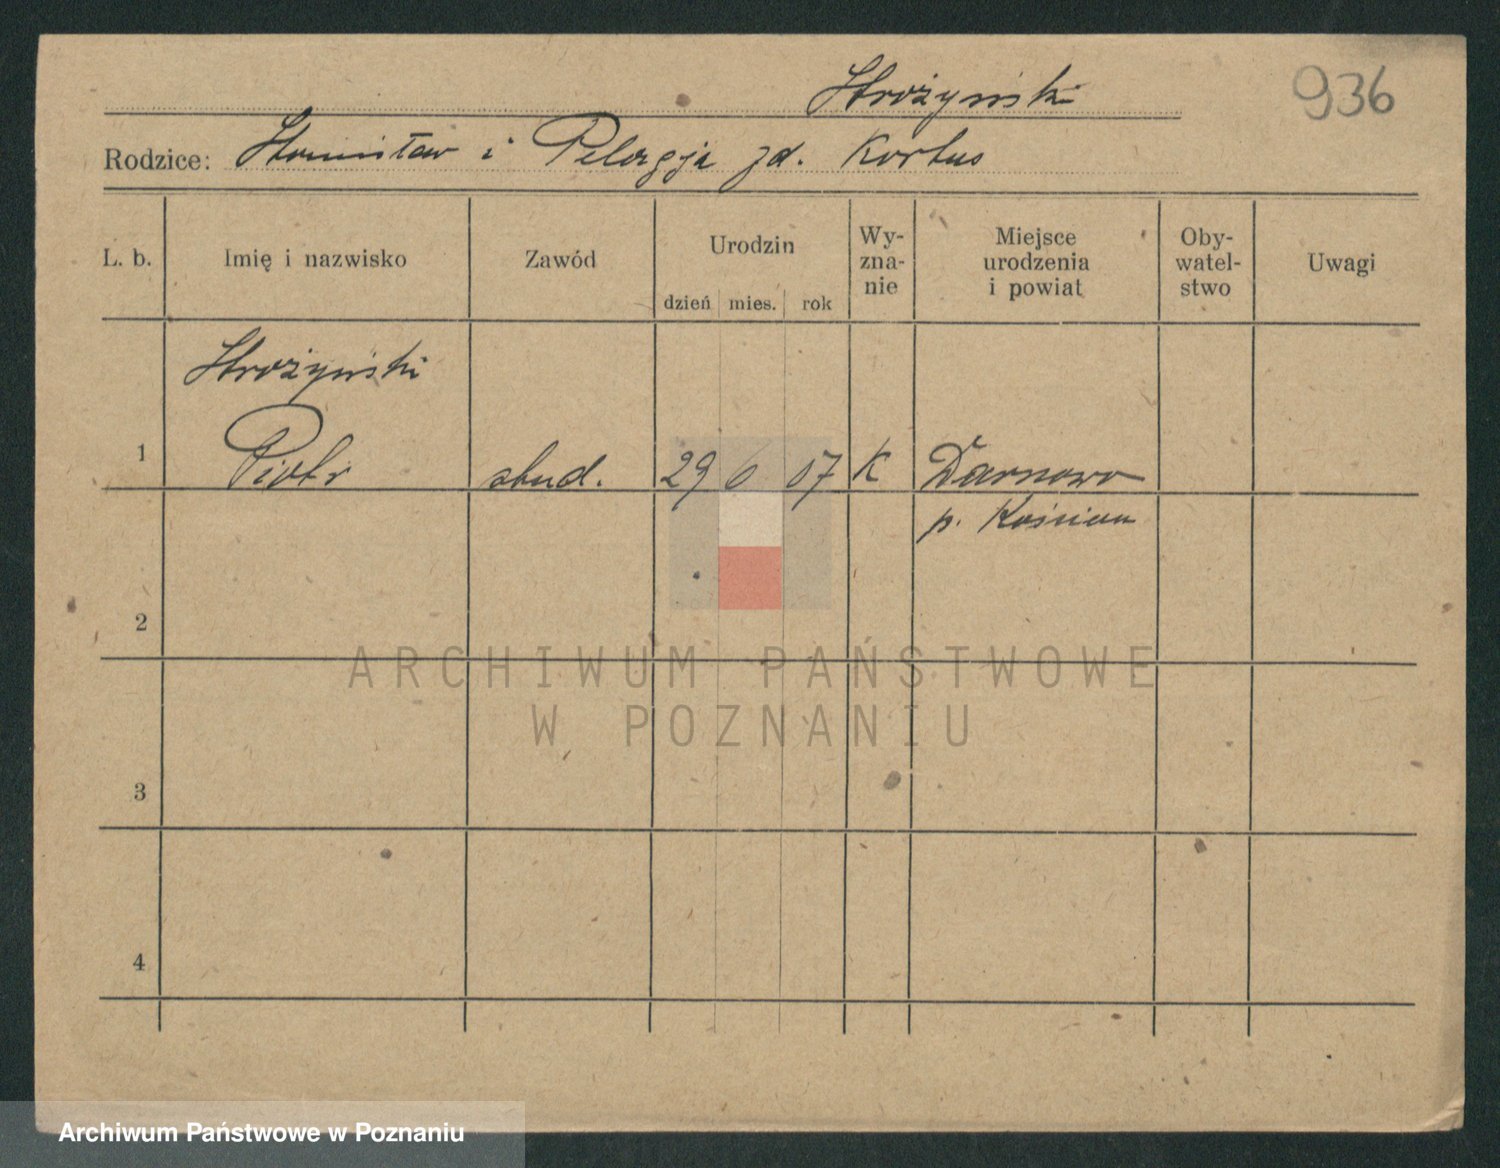 Strożyński
936
Rodzice: Stanisław i Pelagja zd. Kortus
L. b. Imię i nazwisko Zawód Urodzin dzień mies. rok Wy-zna-nie Miejsce urodzenia i powiat Oby-watel-stwo Uwagi
Strożyński
1 Piotr stud. 29 6 07 K Darnowo
p. Kościan
2
ARCHIWUM PAŃSTWOWE
W POZNANIU
3
4
Archiwum Państwowe w Poznaniu